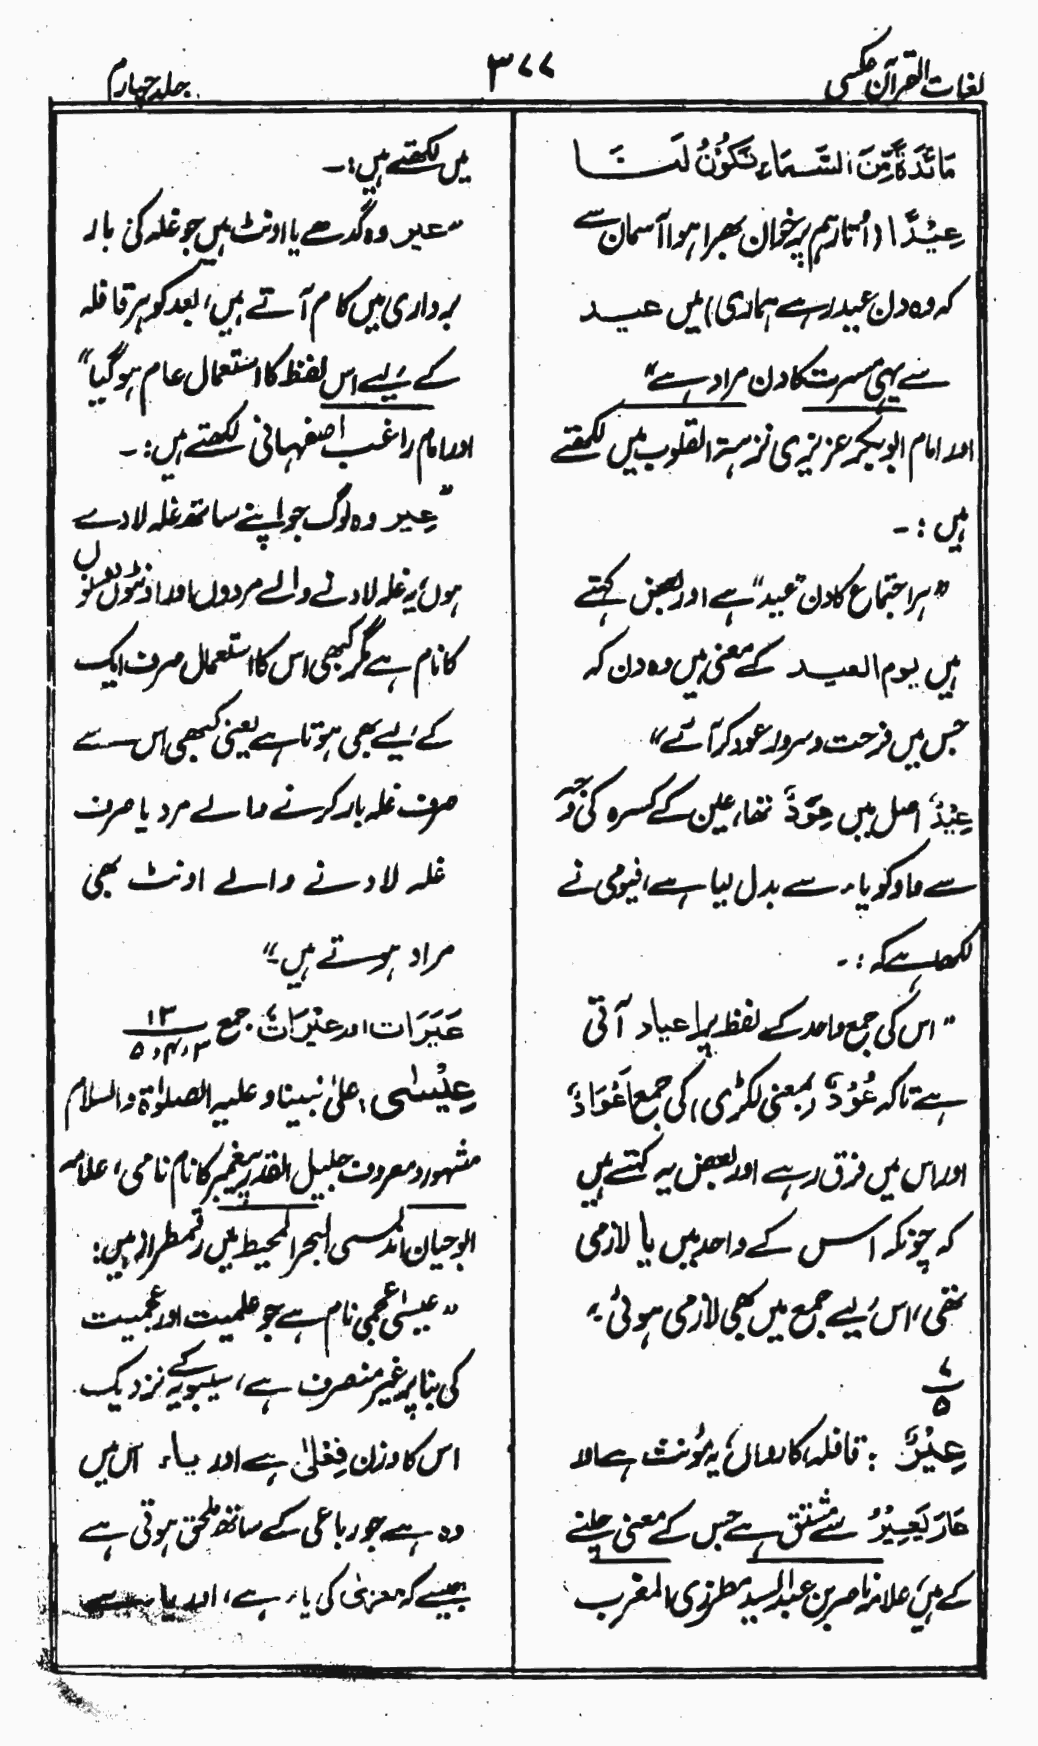 لغات القرآن عکسی
۳۷۷
جلد چہارم
مَائِدَةً مِّنَ السَّمَاءِ تَكُوْنُ لَنَا
عِيْدًا (اُتار ہم پر خوان بھرا ہوا آسمان سے
کہ وہ دن عید رہے ہماری) میں عید
سے یہی مسرت کا دن مراد ہے"
اور امام ابوبکر عزیزی نزہۃ القلوب میں لکھتے
ہیں :۔
"ہر اجتماع کا دن "عید" ہے اور بعض کہتے
ہیں یوم العید کے معنی ہیں وہ دن کہ
جس میں فرحت و سرور عود کر آئے"
عِیْدٌ اصل میں عِوْدٌ تھا، عین کے کسرہ کی وجہ
سے واو کو یاء سے بدل لیا ہے، فیومی نے
لکھا ہے کہ :۔
"اس کی جمع واحد کے لفظ پر اعیاد آتی
ہے تاکہ عُوْدٌ (بمعنی لکڑی) کی جمع اَعْوَادٌ
اور اس میں فرق رہے اور بعض یہ کہتے ہیں
کہ چونکہ اس کے واحد میں یا لازمی
تھی، اس لیے جمع میں بھی لازمی ہوئی"
۷
۵
عِیْرٌ : قافلہ، کارواں، یہ مؤنث ہے اور
عَارَ یَعِیْرُ سے مشتق ہے جس کے معنی چلنے
کے ہیں، علامہ ناصر بن عبدالسید مطرزی المغرب
میں لکھتے ہیں :۔
"عیر وہ گدھے یا اونٹ ہیں جو غلہ کی بار
برداری میں کام آتے ہیں، بعد کو ہر قافلہ
کے لیے اس لفظ کا استعمال عام ہوگیا"
اور امام راغب اصفہانی لکھتے ہیں :۔
"عیر وہ لوگ جو اپنے ساتھ غلہ لادے
ہوں، یہ غلہ لادنے والے مردوں اور اونٹوں دونوں
کا نام ہے مگر کبھی اس کا استعمال صرف ایک
کے لیے بھی ہوتا ہے یعنی کبھی اس سے
صرف غلہ بار کرنے والے مرد یا صرف
غلہ لادنے والے اونٹ بھی
مراد ہوتے ہیں۔"
عَیَرَات اور عِیْرَاتٌ جمع ۱۳
۳،۴،۵
عِیْسٰی، علیٰ نبینا و علیہ الصلوٰۃ والسلام
مشہور و معروف جلیل القدر پیغمبر کا نام نامی، علامہ
ابوحیان اندلسی البحر المحیط میں رقمطراز ہیں:
"عیسیٰ عجمی نام ہے جو علمیت اور عجمیت
کی بنا پر غیر منصرف ہے، سیبویہ کے نزدیک
اس کا وزن فِعْلیٰ ہے اور یاء اس میں
وہ ہے جو رباعی کے ساتھ ملحق ہوتی ہے
جیسے کہ معزیٰ کی یاء ہے، اور یاء سے